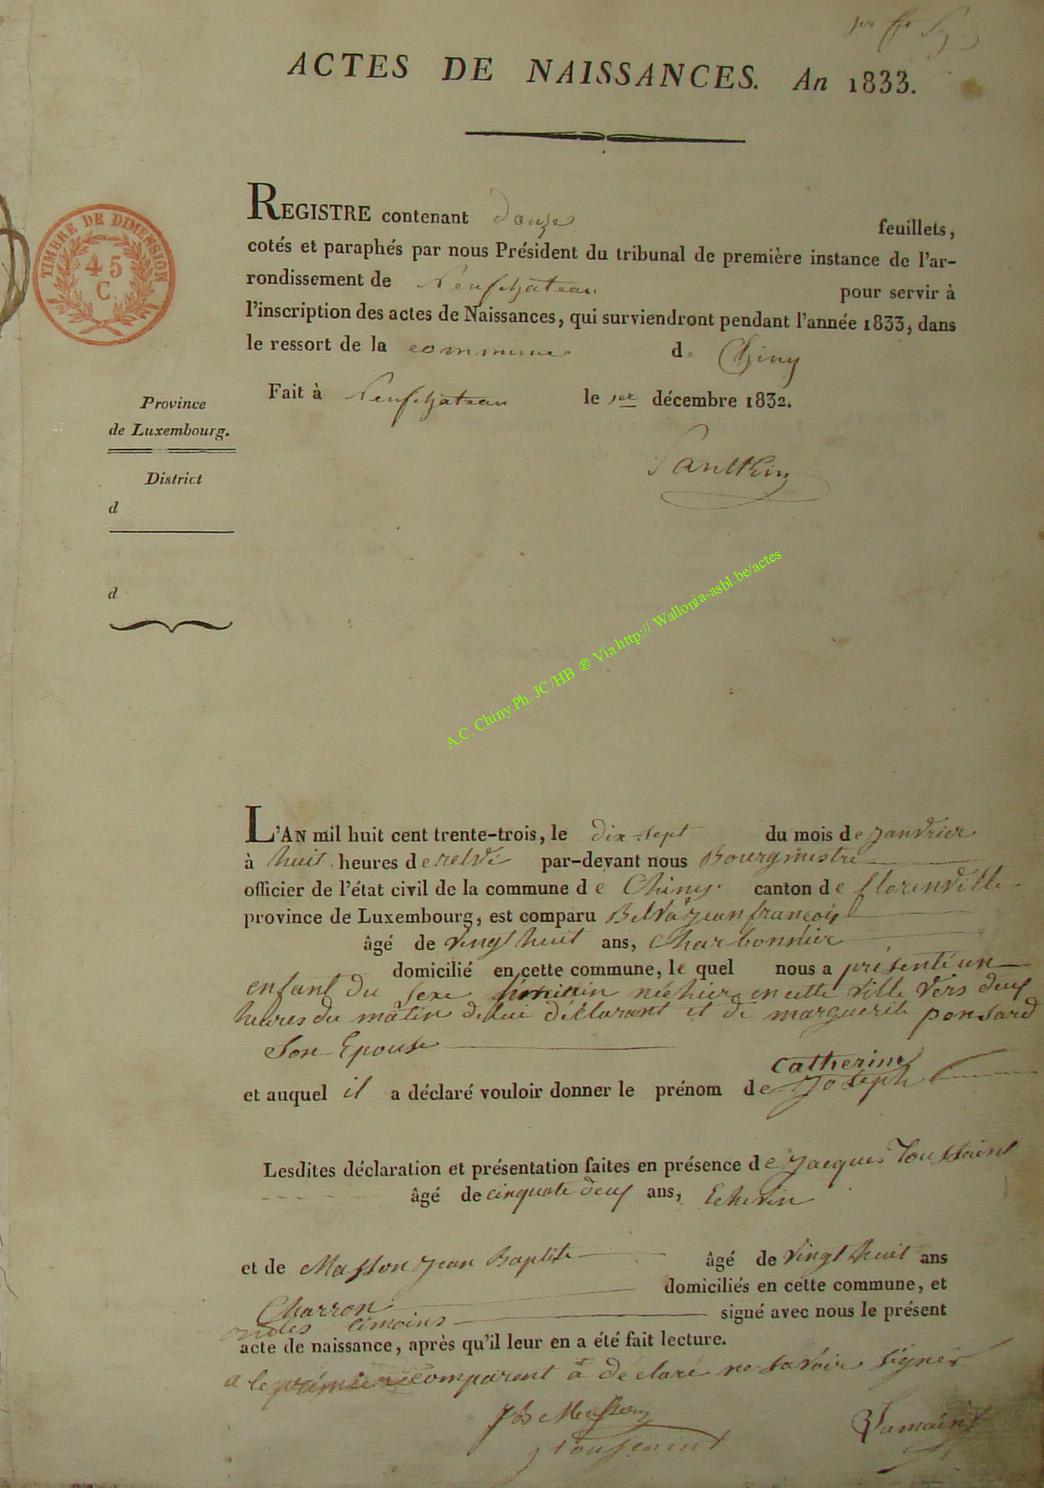 1er
ACTES DE NAISSANCES. An 1833.
REGISTRE contenant Douze feuillets,
cotés et paraphés par nous Président du tribunal de première instance de l'ar-
rondissement de Neufchateau pour servir à
l'inscription des actes de Naissances, qui surviendront pendant l'année 1833, dans
le ressort de la commune de Chiny
Fait à Neufchateau le 1er décembre 1832.
TIMBRE DE DIMENSION
45
C.
Province
de Luxembourg.
District
d
d
A.C. Chiny Ph. JC/HB ® Via http:// Wallonia-asbl.be/actes
L'AN mil huit cent trente-trois, le dix sept du mois de janvrier
à huit heures de relvé par-devant nous Bourgmestre
officier de l'état civil de la commune de Chiny canton de florenville
province de Luxembourg, est comparu Belva jean françois
âgé de vingt huit ans, charbonnier
domicilié en cette commune, le quel nous a présenté un
enfant du sexe féminin né hier en cette ville vers deux
heures du matin de lui déclarant et de marguerite ponsard
Son Epouse
catherine
et auquel il a déclaré vouloir donner le prénom de joseph
Lesdites déclaration et présentation faites en présence de jacques Toussaint
âgé de cinquate deux ans, Echevin
et de Masson jean Baptiste âgé de vingt huit ans
Charron domiciliés en cette commune, et
témoins signé avec nous le présent
acte de naissance, après qu'il leur en a été fait lecture.
le premier comparent a déclaré ne savoir signer
JB Masson
j toussaint